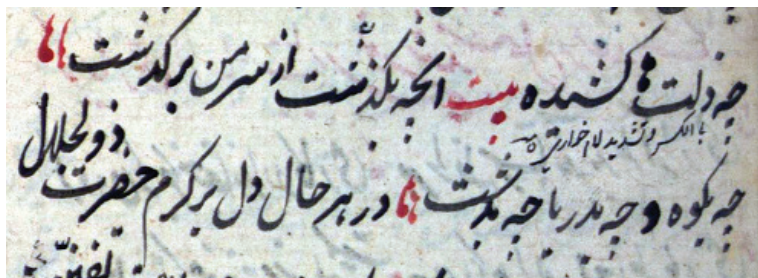 چه ذلت ها کشیده بیت انچه بگذشت از سر من بر گذشت
با لکسر و تشدید لام خواری
چه بکوه و چه بدریا چه بدشت در هر حال دل بر کرم حضرت ذوالجلال